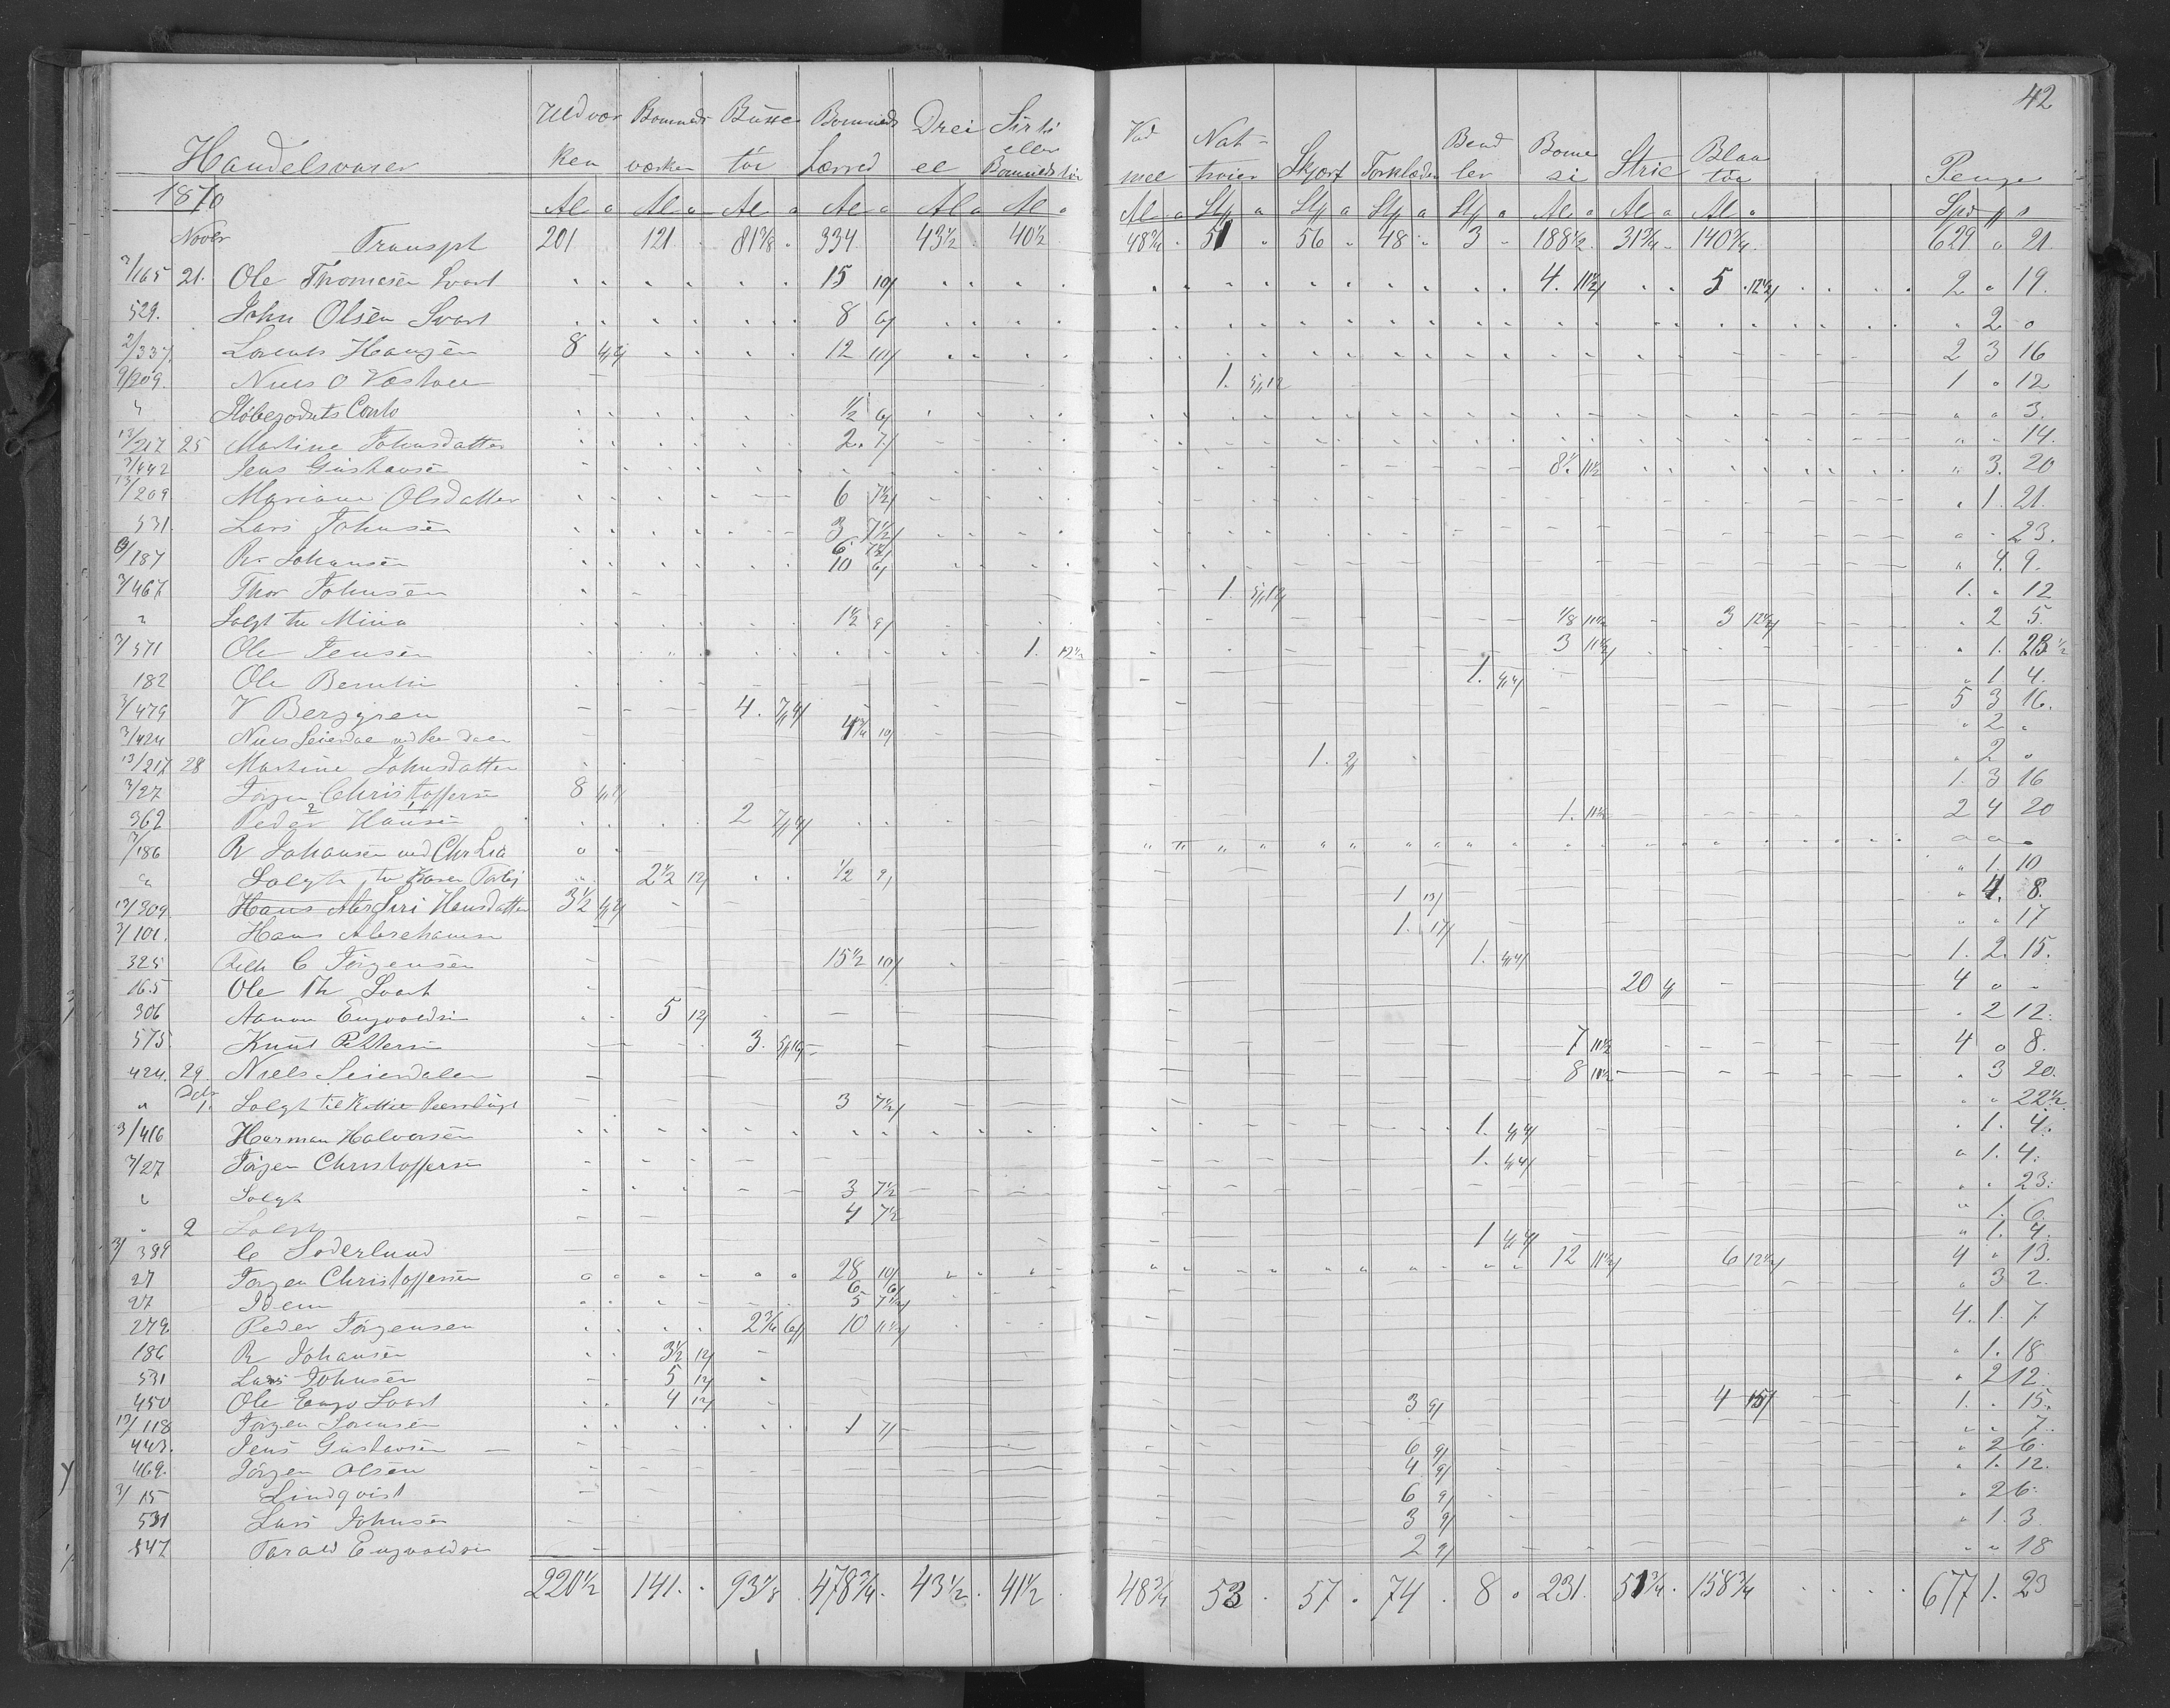 42
Handelsvarer Uldvær ken Bomueds værker Busse tøi Bomueds Lærred Drei el Sirts eller Bomuedstøi Vad mel Nat- trøier Skjört Forklæder Bend ler Bome si Strie Blaa tøi Penge
1870 Al a Al a Al a Al a Al a Al a Al a St a St a St a St a Al a Al a Al a Spd
Novbr Transpt 201 121 81 3/8 334 43 1/2 40 1/2 48 3/4 51 56 48 3 188 1/2 31 3/4 140 3/4 629 " 21
3/165 21. Ole Thomesen Svart 15 10/ 4. 11 1/2/ 5 12 1/2/ 2 " 19.
529. John Olsen Svart 8 6/ " 2 0
2/337. Lorents Hansen 8 12 10/ 2 3 16
9/209. Niels O Væstøl 1. 5/12 1 " 12
" Støbegodsets Conto 1/2 6/ " " 3.
13/217 25 Martine Johnsdatter 2. 7/ " " 14.
3/442 Jens Gustavsen 8. 11 1/2 " 3. 20
13/209 Mariane Olsdatter 6 7 1/2/ " 1. 21.
531. Lars Johnsen 3 7 1/2/ " " 23.
3/187 R. Johansen 6 7 1/2/ 10 6/ " 4. 9.
3/467 Thor Johnsen 1. 5/12 1. " 12
" Solgt til Mina 1 1/2 9/ 1/8 11 1/2 3 12 1/2/ " 2 5.
3/571 Ole Jensen 1. 12 1/2 3 11 1/2/ " 1. 23 1/2
182 Ole Berntsen 1. 4/4/ " 1 4.
3/479 V Berggren 4. 7/4/ 5 3 16.
3/424 Niels Seierdal 4 3/4 10/ " 2 "
13/217 28 Martine Johnsdatter 1. 2/ " 2 "
3/27 Jörgen Christoffersen 8 1. 3 16
362 Peder Hansen 2 7/4/ 1. 11 1/2 2 4 20
3/186 R Johansen ved Chr Lia " " "
" Solgt til Karen 2 1/2 12/ 1/2 9/ " 1 10
13/309. Siri Hansdatter 3 1/2 1 13/ " 4. 8.
3/101. Hans Abrahamsen 1. 17/ " " 17
325 C Jörgensen 15 1/2 10/ 1. 4/4/ 1. 2. 15.
165 Ole Th Svart 20 4/ 4 " -
306 Aanon Engvoldsen 5 12/ " 2 12.
575. Knud Pettersen 3. 5/16 7 11 1/2 4 0 8.
424. 29. Niels Seierdalen 8 11 1/2 " 3 20.
" Dcbr 1. Solgt til 3 7 1/2/ " " 22 1/2
3/416 Herman Halvorsen 1. 4/4/ " 1. 4.
3/27 Jörgen Christoffersen 1. 4/4/ " 1. 4.
" Solgt 3 7 1/2 " " 23.
" 2 Solgt 4 7 1/2 " 1. 6.
3/389 C Soderlund 1 4/4/ " 1. 4.
27 Jörgen Christoffersen 28 10/ 12 11 1/2/ 6 12 1/2/ 4 " 13.
27 Idem 6 6/ 5 7 1/2/ " 3 2.
279. Peder Jörgensen 2 3/4 6/ 10 11 1/2/ 4. 1. 7
186 R Johansen 3 1/2 12/ " 1. 18
531 Lars Johnsen 5 12/ " 2 12.
450 Ole Engv Svart 4 12/ 3 9/ 4 15/ 1. " 15.
13/118 Jörgen Sörensen 1 7/ " " 7.
443. Jens Gustavsen 6 9/ " 2 6.
469. Jörgen Olsen 4 9/ " 1. 12.
3/15 Lindqvist 6 9/ " 2 6.
531 Lars Johnsen 3 9/ " 1. 3.
547 Tarald Engvoldsen 2 9/ " " 18
220 1/2 141. 93 7/8 478 3/4. 43 1/2. 41 1/2 48 3/4 53. 57. 74. 8. 231. 51 3/4. 158 3/4 677 1. 23